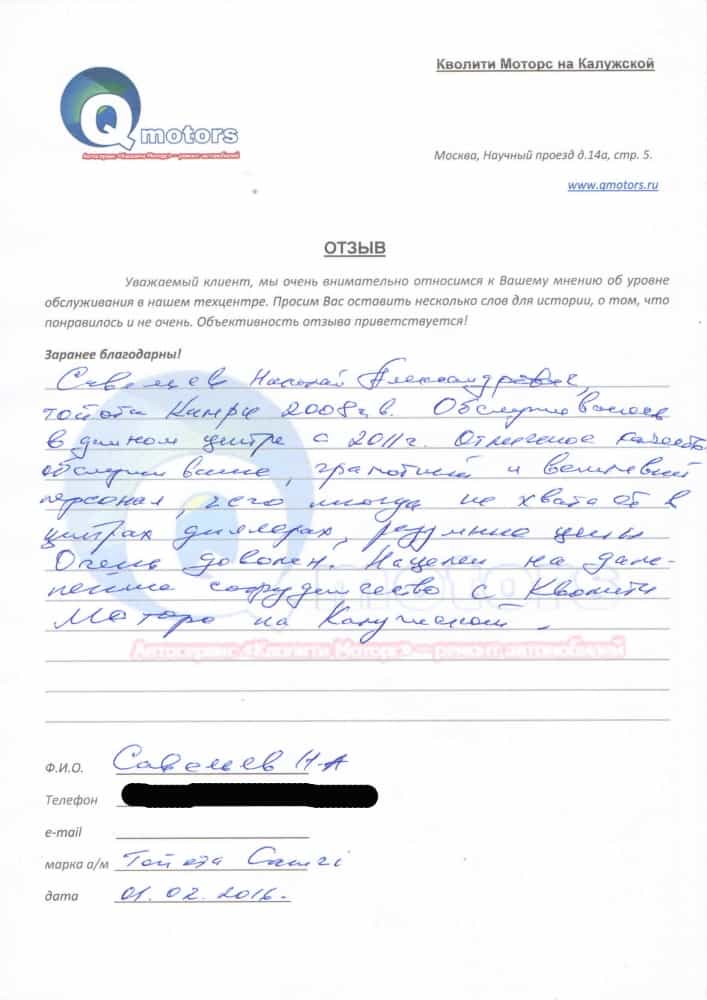 Кволити Моторс на Калужской
Q motors
Автосервис «Кволити Моторс» — ремонт автомобилей
Москва, Научный проезд д.14а, стр. 5.
www.qmotors.ru
ОТЗЫВ
Уважаемый клиент, мы очень внимательно относимся к Вашему мнению об уровне
обслуживания в нашем техцентре. Просим Вас оставить несколько слов для истории, о том, что
понравилось и не очень. Объективность отзыва приветствуется!
Заранее благодарны!
Николай Александрович,
тойота Камри 2008г.в. Обслуживаюсь
в данном центре с 2011г. Отличное качество
обслуживание, грамотный и вежливый
персонал, чего иногда не хватает в
центрах диллерах, разумные цены
Очень доволен. Нацелен на даль-
нейшее сотрудничество с Кволити
Моторс на Калужской.
motors
Автосервис «Кволити Моторс» — ремонт автомобилей
Ф.И.О. Н.А
Телефон
e-mail
марка а/м Тойота Camri
дата 01.02.2016.